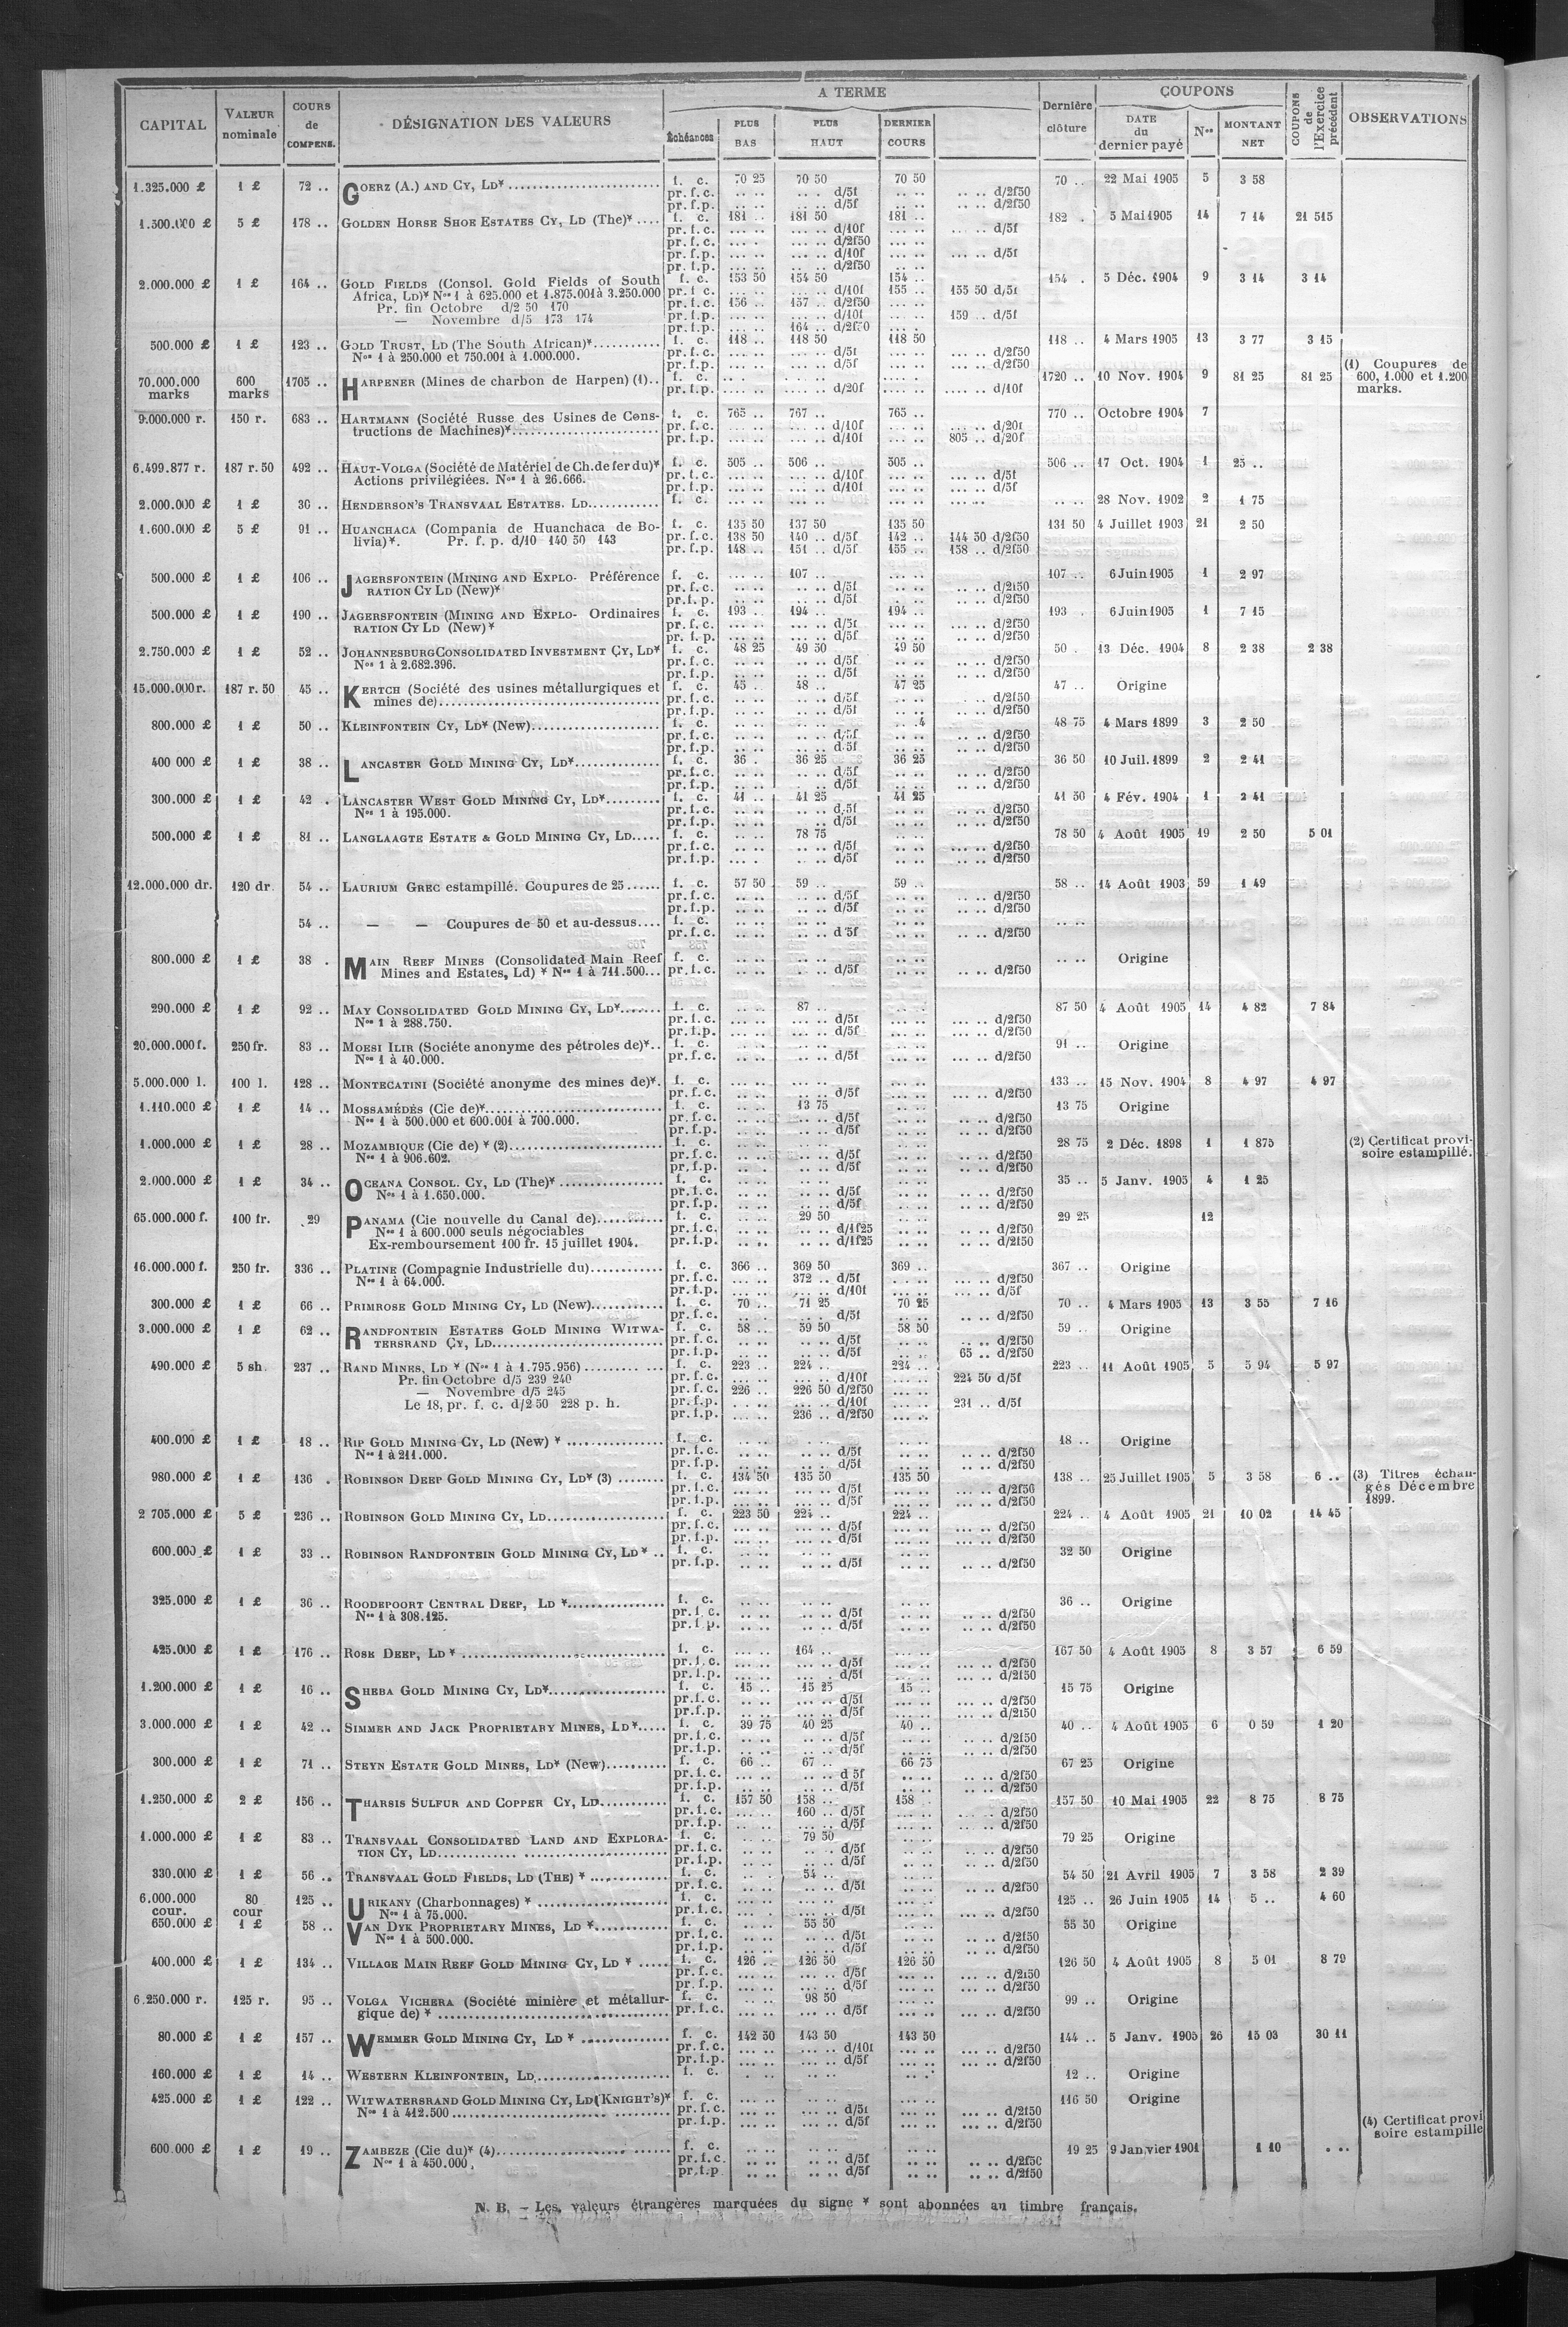 CAPITAL | VALEUR nominale | COURS de COMPENS. | DÉSIGNATION DES VALEURS | A TERME | Dernière clôture | COUPONS | COUPONS de l'Exercice précédent | OBSERVATIONS
Échéances | PLUS BAS | PLUS HAUT | DERNIER COURS | DATE du dernier payé | Nos | MONTANT NET
1.325.000 £ | 1 £ | 72 .. | GOERZ (A.) AND CY, LD* | f. c. | 70 25 | 70 50 | 70 50 | 70 .. | 22 Mai 1905 | 5 | 3 58
pr. f. c. | .. .. | .. . d/5f | .. .. | .. .. d/2f50
pr. f. p. | .. .. | .. .. d/5f | .. .. | .. .. d/2f50
1.500.000 £ | 5 £ | 178 .. | GOLDEN HORSE SHOE ESTATES CY, LD (The)* .... | f. c. | 181 .. | 181 50 | 181 .. | 182 . | 5 Mai 1905 | 14 | 7 14 | 21 515
pr. f. c. | ... .. | ... .. d/10f | ... .. | ... .. d/5f
pr. f. c. | ... .. | ... .. d/2f50
pr. f. p. | ... .. | ... .. d/10f | ... .. | ... .. d/5f
pr. f. p. | ... .. | ... .. d/2f50
2.000.000 £ | 1 £ | 164 .. | GOLD FIELDS (Consol. Gold Fields of South | f. c. | 153 50 | 154 50 | 154 .. | 154 . | 5 Déc. 1904 | 9 | 3 14 | 3 14
Africa, LD)* Nos 1 à 625.000 et 1.875.001 à 3.250.000 | pr. f. c. | ... .. | ... .. d/10f | 155 .. | 155 50 d/5f
Pr. fin Octobre d/2 50 170 | pr. f. c. | 156 .. | 157 .. d/2f50
— Novembre d/5 173 174 | pr. f. p. | ... .. | ... .. d/10f | 159 .. d/5f
pr. f. p. | ... .. | 164 .. d/2f50
500.000 £ | 1 £ | 123 .. | GOLD TRUST, LD (The South African)* | f. c. | 118 .. | 118 50 | 118 50 | 118 .. | 4 Mars 1905 | 13 | 3 77 | 3 15
Nos 1 à 250.000 et 750.001 à 1.000.000. | pr. f. c. | ... .. | ... .. d/5f | ... .. | ... .. d/2f50
pr. f. p. | ... .. | ... .. d/5f | ... .. | ... .. d/2f50 | (1) Coupures de
70.000.000 | 600 | 1705 .. | HARPENER (Mines de charbon de Harpen) (1).. | f. c. | 1720 .. | 10 Nov. 1904 | 9 | 81 25 | 81 25 | 600, 1.000 et 1.200
marks | marks | pr. f. p. | .... .. | .... .. d/20f | .... .. d/10f | marks.
9.000.000 r. | 150 r. | 683 .. | HARTMANN (Société Russe des Usines de Cons- | f. c. | 765 .. | 767 .. | 765 .. | 770 .. | Octobre 1904 | 7
tructions de Machines)* | pr. f. c. | ... .. | ... .. d/10f | ... .. d/20f
pr. f. p. | ... .. | ... .. d/10f | 805 .. d/20f
6.499.877 r. | 187 r. 50 | 492 .. | HAUT-VOLGA (Société de Matériel de Ch. de fer du)* | f. c. | 505 .. | 506 .. | 505 .. | 506 .. | 17 Oct. 1904 | 1 | 25 ..
Actions privilégiées. Nos 1 à 26.666. | pr. f. c. | ... .. | ... .. d/10f | ... .. d/5f
pr. f. p. | ... .. | ... .. d/10f | ... .. d/5f
2.000.000 £ | 1 £ | 30 .. | HENDERSON'S TRANSVAAL ESTATES. LD | f. c. | .. .. | .. .. | .. .. | .. .. | 28 Nov. 1902 | 2 | 1 75
1.600.000 £ | 5 £ | 91 .. | HUANCHACA (Compania de Huanchaca de Bo- | f. c. | 135 50 | 137 50 | 135 50 | 131 50 | 4 Juillet 1903 | 21 | 2 50
livia)*. Pr. f. p. d/10 140 50 143 | pr. f. c. | 138 50 | 140 .. d/5f | 142 .. | 144 50 d/2f50
pr. f. p. | 148 .. | 151 .. d/5f | 155 .. | 158 .. d/2f50
500.000 £ | 1 £ | 106 .. | JAGERSFONTEIN (MINING AND EXPLO- Préférence | f. c. | ... .. | 107 .. | 107 .. | 6 Juin 1905 | 1 | 2 97
RATION CY LD (New)* | pr. f. c. | ... .. | ... .. d/5f | ... .. | d/2f50
pr. f. p. | ... .. | ... .. d/5f | ... .. | d/2f50
500.000 £ | 1 £ | 190 .. | JAGERSFONTEIN (MINING AND EXPLO- Ordinaires | f. c. | 193 .. | 194 .. | 194 .. | 193 . | 6 Juin 1905 | 1 | 7 15
RATION CY LD (New)* | pr. f. c. | ... .. | ... .. d/5f | ... .. | d/2f50
pr. f. p. | ... .. | ... .. d/5f | ... .. | d/2f50
2.750.000 £ | 1 £ | 52 .. | JOHANNESBURG CONSOLIDATED INVESTMENT CY, LD* | f. c. | 48 25 | 49 50 | 49 50 | 50 . | 13 Déc. 1904 | 8 | 2 38 | 2 38
Nos 1 à 2.682.396. | pr. f. c. | .. .. | .. .. d/5f | .. .. | d/2f50
pr. f. p. | .. .. | .. .. d/5f | .. .. | d/2f50
15.000.000 r. | 187 r. 50 | 45 .. | KERTCH (Société des usines métallurgiques et | f. c. | 45 .. | 48 .. | 47 25 | 47 .. | Origine
mines de) | pr. f. c. | .. .. | .. .. d/5f | .. .. | d/2f50
pr. f. p. | .. .. | .. .. d/5f | .. .. | d/2f50
800.000 £ | 1 £ | 50 .. | KLEINFONTEIN CY, LD* (New) | f. c. | 48 75 | 4 Mars 1899 | 3 | 2 50
pr. f. c. | .. .. | .. .. d/5f | .. .. | d/2f50
pr. f. p. | .. .. | .. .. d/5f | .. .. | d/2f50
400 000 £ | 1 £ | 38 .. | LANCASTER GOLD MINING CY, LD* | f. c. | 36 . | 36 25 | 36 25 | 36 50 | 10 Juil. 1899 | 2 | 2 41
pr. f. c. | .. .. | .. .. d/5f | .. .. | d/2f50
pr. f. p. | .. .. | .. .. d/5f | .. .. | d/2f50
300.000 £ | 1 £ | 42 . | LANCASTER WEST GOLD MINING CY, LD* | f. c. | 41 .. | 41 25 | 41 25 | 41 50 | 4 Fév. 1904 | 1 | 2 41
Nos 1 à 195.000. | pr. f. c. | .. .. | .. .. d/5f | .. .. | d/2f50
pr. f. p. | .. .. | .. .. d/5f | .. .. | d/2f50
500.000 £ | 1 £ | 81 .. | LANGLAAGTE ESTATE & GOLD MINING CY, LD | f. c. | .. .. | 78 75 | 78 50 | 4 Août 1905 | 19 | 2 50 | 5 01
pr. f. c. | .. .. | .. .. d/5f | .. .. | d/2f50
pr. f. p. | .. .. | .. .. d/5f | .. .. | d/2f50
12.000.000 dr. | 120 dr. | 54 .. | LAURIUM GREC estampillé. Coupures de 25 | f. c. | 57 50 | 59 .. | 59 .. | 58 .. | 14 Août 1903 | 59 | 1 49
pr. f. c. | .. .. | .. .. d/5f | .. .. | d/2f50
pr. f. p. | .. .. | .. .. d/5f | .. .. | d/2f50
54 .. | — — Coupures de 50 et au-dessus | f. c. | .. .. | .. .. | .. .. | .. ..
pr. f. c. | .. .. | .. .. d 5f | .. .. | d/2f50
800.000 £ | 1 £ | 38 . | MAIN REEF MINES (Consolidated Main Reef | f. c. | .. .. | .. .. | .. .. | .. .. | Origine
Mines and Estates, Ld) * Nos 1 à 711.500 | pr. f. c. | .. .. | .. .. d/5f | .. .. | d/2f50
290.000 £ | 1 £ | 92 .. | MAY CONSOLIDATED GOLD MINING CY, LD* | f. c. | .. .. | 87 .. | 87 50 | 4 Août 1905 | 14 | 4 82 | 7 84
Nos 1 à 288.750. | pr. f. c. | ... .. | ... .. d/5f | ... .. | d/2f50
pr. f. p. | ... .. | ... .. d/5f | ... .. | d/2f50
20.000.000 f. | 250 fr. | 83 .. | MOESI ILIR (Sociéte anonyme des pétroles de)*.. | f. c. | 91 .. | Origine
Nos 1 à 40.000. | pr. f. c. | ... .. | ... .. d/5f | ... .. | d/2f50
5.000.000 l. | 100 l. | 128 .. | MONTECATINI (Société anonyme des mines de)*. | f. c. | 133 .. | 15 Nov. 1904 | 8 | 4 97 | 4 97
pr. f. c. | ... .. | ... .. d/5f | ... .. | d/2f50
1.110.000 £ | 1 £ | 14 .. | MOSSAMÉDÈS (Cie de)* | f. c. | .. .. | 13 75 | 13 75 | Origine
Nos 1 à 500.000 et 600.001 à 700.000. | pr. f. c. | .. .. | .. .. d/5f | .. .. | d/2f50
pr. f. p. | .. .. | .. .. d/5f | .. .. | d/2f50
1.000.000 £ | 1 £ | 28 .. | MOZAMBIQUE (Cie de) * (2) | f. c. | 28 75 | 2 Déc. 1898 | 1 | 1 875 | (2) Certificat provi-
Nos 1 à 906.602. | pr. f. c. | .. .. | .. .. d/5f | .. .. | d/2f50 | soire estampillé.
pr. f. p. | .. .. | .. .. d/5f | .. .. | d/2f50
2.000.000 £ | 1 £ | 34 .. | OCEANA CONSOL. CY, LD (The)* | f. c. | 35 .. | 5 Janv. 1905 | 4 | 1 25
Nos 1 à 1.650.000. | pr. f. c. | .. .. | .. .. d/5f | .. .. | d/2f50
pr. f. p. | .. .. | .. .. d/5f | .. .. | d/2f50
65.000.000 f. | 100 fr. | 29 | PANAMA (Cie nouvelle du Canal de) | f. c. | .. .. | 29 50 | 29 25 | 12
Nos 1 à 600.000 seuls négociables | pr. f. c. | .. .. | .. .. d/1f25 | .. .. | d/2f50
Ex-remboursement 100 fr. 15 juillet 1904. | pr. f. p. | .. .. | .. .. d/1f25 | .. .. | d/2f50
16.000.000 f. | 250 fr. | 336 .. | PLATINE (Compagnie Industrielle du) | f. c. | 366 .. | 369 50 | 369 .. | 367 .. | Origine
Nos 1 à 64.000. | pr. f. c. | ... .. | 372 .. d/5f | ... .. | d/2f50
pr. f. p. | ... .. | ... .. d/10f | ... .. | d/5f
300.000 £ | 1 £ | 66 .. | PRIMROSE GOLD MINING CY, LD (New) | f. c. | 70 .. | 71 25 | 70 25 | 70 .. | 4 Mars 1905 | 13 | 3 55 | 7 16
pr. f. c. | .. .. | .. .. d/5f | .. .. | d/2f50
3.000.000 £ | 1 £ | 62 .. | RANDFONTEIN ESTATES GOLD MINING WITWA- | f. c. | 58 .. | 59 50 | 58 50 | 59 .. | Origine
TERSRAND CY, LD | pr. f. c. | .. .. | .. .. d/5f | .. .. | d/2f50
pr. f. p. | .. .. | .. .. d/5f | .. .. | 65 .. d/2f50
490.000 £ | 5 sh. | 237 .. | RAND MINES, LD * (Nos 1 à 1.795.956) | f. c. | 223 .. | 224 .. | 224 .. | 223 .. | 11 Août 1905 | 5 | 5 94 | 5 97
Pr. fin Octobre d/5 239 240 | pr. f. c. | ... .. | ... .. d/10f | ... .. | 224 50 d/5f
— Novembre d/5 245 | pr. f. c. | 226 .. | 226 50 d/2f50
Le 18, pr. f. c. d/2 50 228 p. h. | pr. f. p. | ... .. | ... .. d/10f | 231 .. d/5f
pr. f. p. | ... .. | 236 .. d/2f50
400.000 £ | 1 £ | 18 .. | RIP GOLD MINING CY, LD (New) * | f. c. | 18 .. | Origine
Nos 1 à 211.000. | pr. f. c. | .. .. | .. .. d/5f | .. .. | d/2f50
pr. f. p. | .. .. | .. .. d/5f | .. .. | d/2f50
980.000 £ | 1 £ | 136 . | ROBINSON DEEP GOLD MINING CY, LD* (3) | f. c. | 134 50 | 135 50 | 135 50 | 138 .. | 25 Juillet 1905 | 5 | 3 58 | 6 .. | (3) Titres échan-
pr. f. c. | ... .. | ... .. d/5f | ... .. | d/2f50 | gés Décembre
pr. f. p. | ... .. | ... .. d/5f | ... .. | d/2f50 | 1899.
2 705.000 £ | 5 £ | 236 .. | ROBINSON GOLD MINING CY, LD | f. c. | 223 50 | 224 .. | 224 .. | 224 .. | 4 Août 1905 | 21 | 10 02 | 14 45
pr. f. c. | ... .. | ... .. d/5f | ... .. | d/2f50
pr. f. p. | ... .. | ... .. d/5f | ... .. | d/2f50
600.000 £ | 1 £ | 33 .. | ROBINSON RANDFONTEIN GOLD MINING CY, LD* .. | f. c. | 32 50 | Origine
pr. f. p. | .. .. | .. .. d/5f | .. .. | d/2f50
325.000 £ | 1 £ | 36 .. | ROODEPOORT CENTRAL DEEP, LD * | f. c. | 36 .. | Origine
Nos 1 à 308.125. | pr. f. c. | .. .. | .. .. d/5f | .. .. | d/2f50
pr. f. p. | .. .. | .. .. d/5f | .. .. | d/2f50
425.000 £ | 1 £ | 176 .. | ROSE DEEP, LD * | f. c. | ... .. | 164 .. | 167 50 | 4 Août 1905 | 8 | 3 57 | 6 59
pr. f. c. | ... .. | ... .. d/5f | ... .. | d/2f50
pr. f. p. | ... .. | ... .. d/5f | ... .. | d/2f50
1.200.000 £ | 1 £ | 16 .. | SHEBA GOLD MINING CY, LD* | f. c. | 15 .. | 15 25 | 15 .. | 15 75 | Origine
pr. f. c. | .. .. | .. .. d/5f | .. .. | d/2f50
pr. f. p. | .. .. | .. .. d/5f | .. .. | d/2f50
3.000.000 £ | 1 £ | 42 .. | SIMMER AND JACK PROPRIETARY MINES, LD* | f. c. | 39 75 | 40 25 | 40 .. | 40 .. | 4 Août 1905 | 6 | 0 59 | 1 20
pr. f. c. | .. .. | .. .. d/5f | .. .. | d/2f50
pr. f. p. | .. .. | .. .. d/5f | .. .. | d/2f50
300.000 £ | 1 £ | 71 .. | STEYN ESTATE GOLD MINES, LD* (New) | f. c. | 66 .. | 67 .. | 66 75 | 67 25 | Origine
pr. f. c. | .. .. | .. .. d 5f | .. .. | d/2f50
pr. f. p. | .. .. | .. .. d/5f | .. .. | d/2f50
1.250.000 £ | 2 £ | 156 .. | THARSIS SULFUR AND COPPER CY, LD | f. c. | 157 50 | 158 .. | 158 . | 157 50 | 10 Mai 1905 | 22 | 8 75 | 8 75
pr. f. c. | ... .. | 160 .. d/5f | ... .. | d/2f50
pr. f. p. | ... .. | ... .. d/5f | ... .. | d/2f50
1.000.000 £ | 1 £ | 83 .. | TRANSVAAL CONSOLIDATED LAND AND EXPLORA- | f. c. | .. .. | 79 50 | 79 25 | Origine
TION CY, LD | pr. f. c. | .. .. | .. .. d/5f | .. .. | d/2f50
pr. f. p. | .. .. | .. .. d/5f | .. .. | d/2f50
330.000 £ | 1 £ | 56 .. | TRANSVAAL GOLD FIELDS, LD (THE) * | f. c. | .. .. | 54 .. | 54 50 | 21 Avril 1905 | 7 | 3 58 | 2 39
pr. f. c. | .. .. | .. .. d/5f | .. .. | d/2f50
6.000.000 | 80 | 125 .. | URIKANY (Charbonnages) * | f. c. | 125 .. | 26 Juin 1905 | 14 | 5 .. | 4 60
cour. | cour | Nos 1 à 75.000. | pr. f. c. | ... .. | ... .. d/5f | ... .. | d/2f50
650.000 £ | 1 £ | 58 .. | VAN DYK PROPRIETARY MINES, LD * | f. c. | .. .. | 55 50 | 55 50 | Origine
Nos 1 à 500.000. | pr. f. c. | .. .. | .. .. d/5f | .. .. | d/2f50
pr. f. p. | .. .. | .. .. d/5f | .. .. | d/2f50
400.000 £ | 1 £ | 134 .. | VILLAGE MAIN REEF GOLD MINING CY, LD * | f. c. | 126 .. | 126 50 | 126 50 | 126 50 | 4 Août 1905 | 8 | 5 01 | 8 79
pr. f. c. | ... .. | ... .. d/5f | ... .. | d/2f50
pr. f. p. | ... .. | ... .. d/5f | ... .. | d/2f50
6.250.000 r. | 125 r. | 95 .. | VOLGA VICHERA (Société minière et métallur- | f. c. | .. .. | 98 50 | 99 .. | Origine
gique de) * | pr. f. c. | ... .. | ... .. d/5f | ... .. | d/2f50
80.000 £ | 1 £ | 157 .. | WEMMER GOLD MINING CY, LD * | f. c. | 142 50 | 143 50 | 143 50 | 144 .. | 5 Janv. 1905 | 26 | 15 03 | 30 11
pr. f. c. | ... .. | ... .. d/10f | ... .. | d/2f50
pr. f. p. | ... .. | ... .. d/5f | ... .. | d/2f50
160.000 £ | 1 £ | 14 .. | WESTERN KLEINFONTEIN, LD | f. c. | 12 .. | Origine
425.000 £ | 1 £ | 122 .. | WITWATERSRAND GOLD MINING CY, LD (KNIGHT'S)* | f. c. | 116 50 | Origine
Nos 1 à 412.500 | pr. f. c. | ... .. | ... .. d/5f | ... .. | d/2f50
pr. f. p. | ... .. | ... .. d/5f | ... .. | d/2f50 | (4) Certificat provi
soire estampille
600.000 £ | 1 £ | 19 .. | ZAMBEZE (Cie du)* (4) | f. c. | 19 25 | 9 Janvier 1901 | 1 10 | . ..
Nos 1 à 450.000. | pr. f. c. | .. .. | .. .. d/5f | .. .. | d/2f50
pr. f. p. | .. .. | .. .. d/5f | .. .. | d/2f50
N. B. — Les valeurs étrangères marquées du signe * sont abonnées au timbre français.